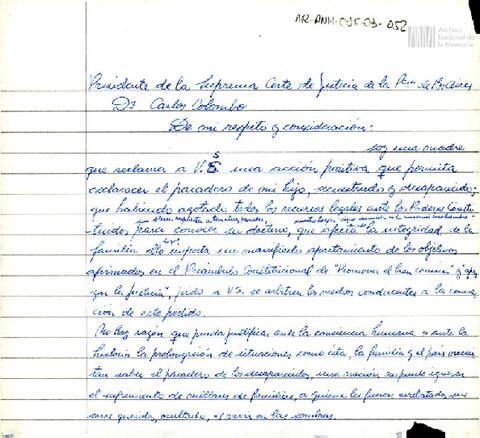 AR-ANM-CJF-03-052
Archivo
Nacional de
la Memoria
Presidente de la Suprema Corte de Justicia de la Pcia. de Bs. Aires
Dr Carlos Colombo
De mi respeto y consideración:
soy una madre
que reclama a V.S una acción positiva que permita
esclarecer el paradero de mi hijo, secuestrado y desaparecido;
que habiendo agotado todos los recursos legales ante los Poderes Consti-
tuidos para conocer su destino, que afecta la integridad de la
familia e importa un manifiesto apartamiento de los objetivos
afirmados en el Preámbulo Constitucional de "Promover el bien común y afian
zar la Justicia", pido a V.S. se arbitren los medios conducentes a la concre
ción de este pedido.
No hay razón que pueda justificar ante la conciencia humana o ante la
historia la prolongación de situaciones como ésta, la familia y el país necesi
tan saber el paradero de los desaparecidos, una nación no puede ignorar
el sufrimiento de millares de familias, a quienes les fueron arrebatados sus
seres queridos, el vivir en las sombras.